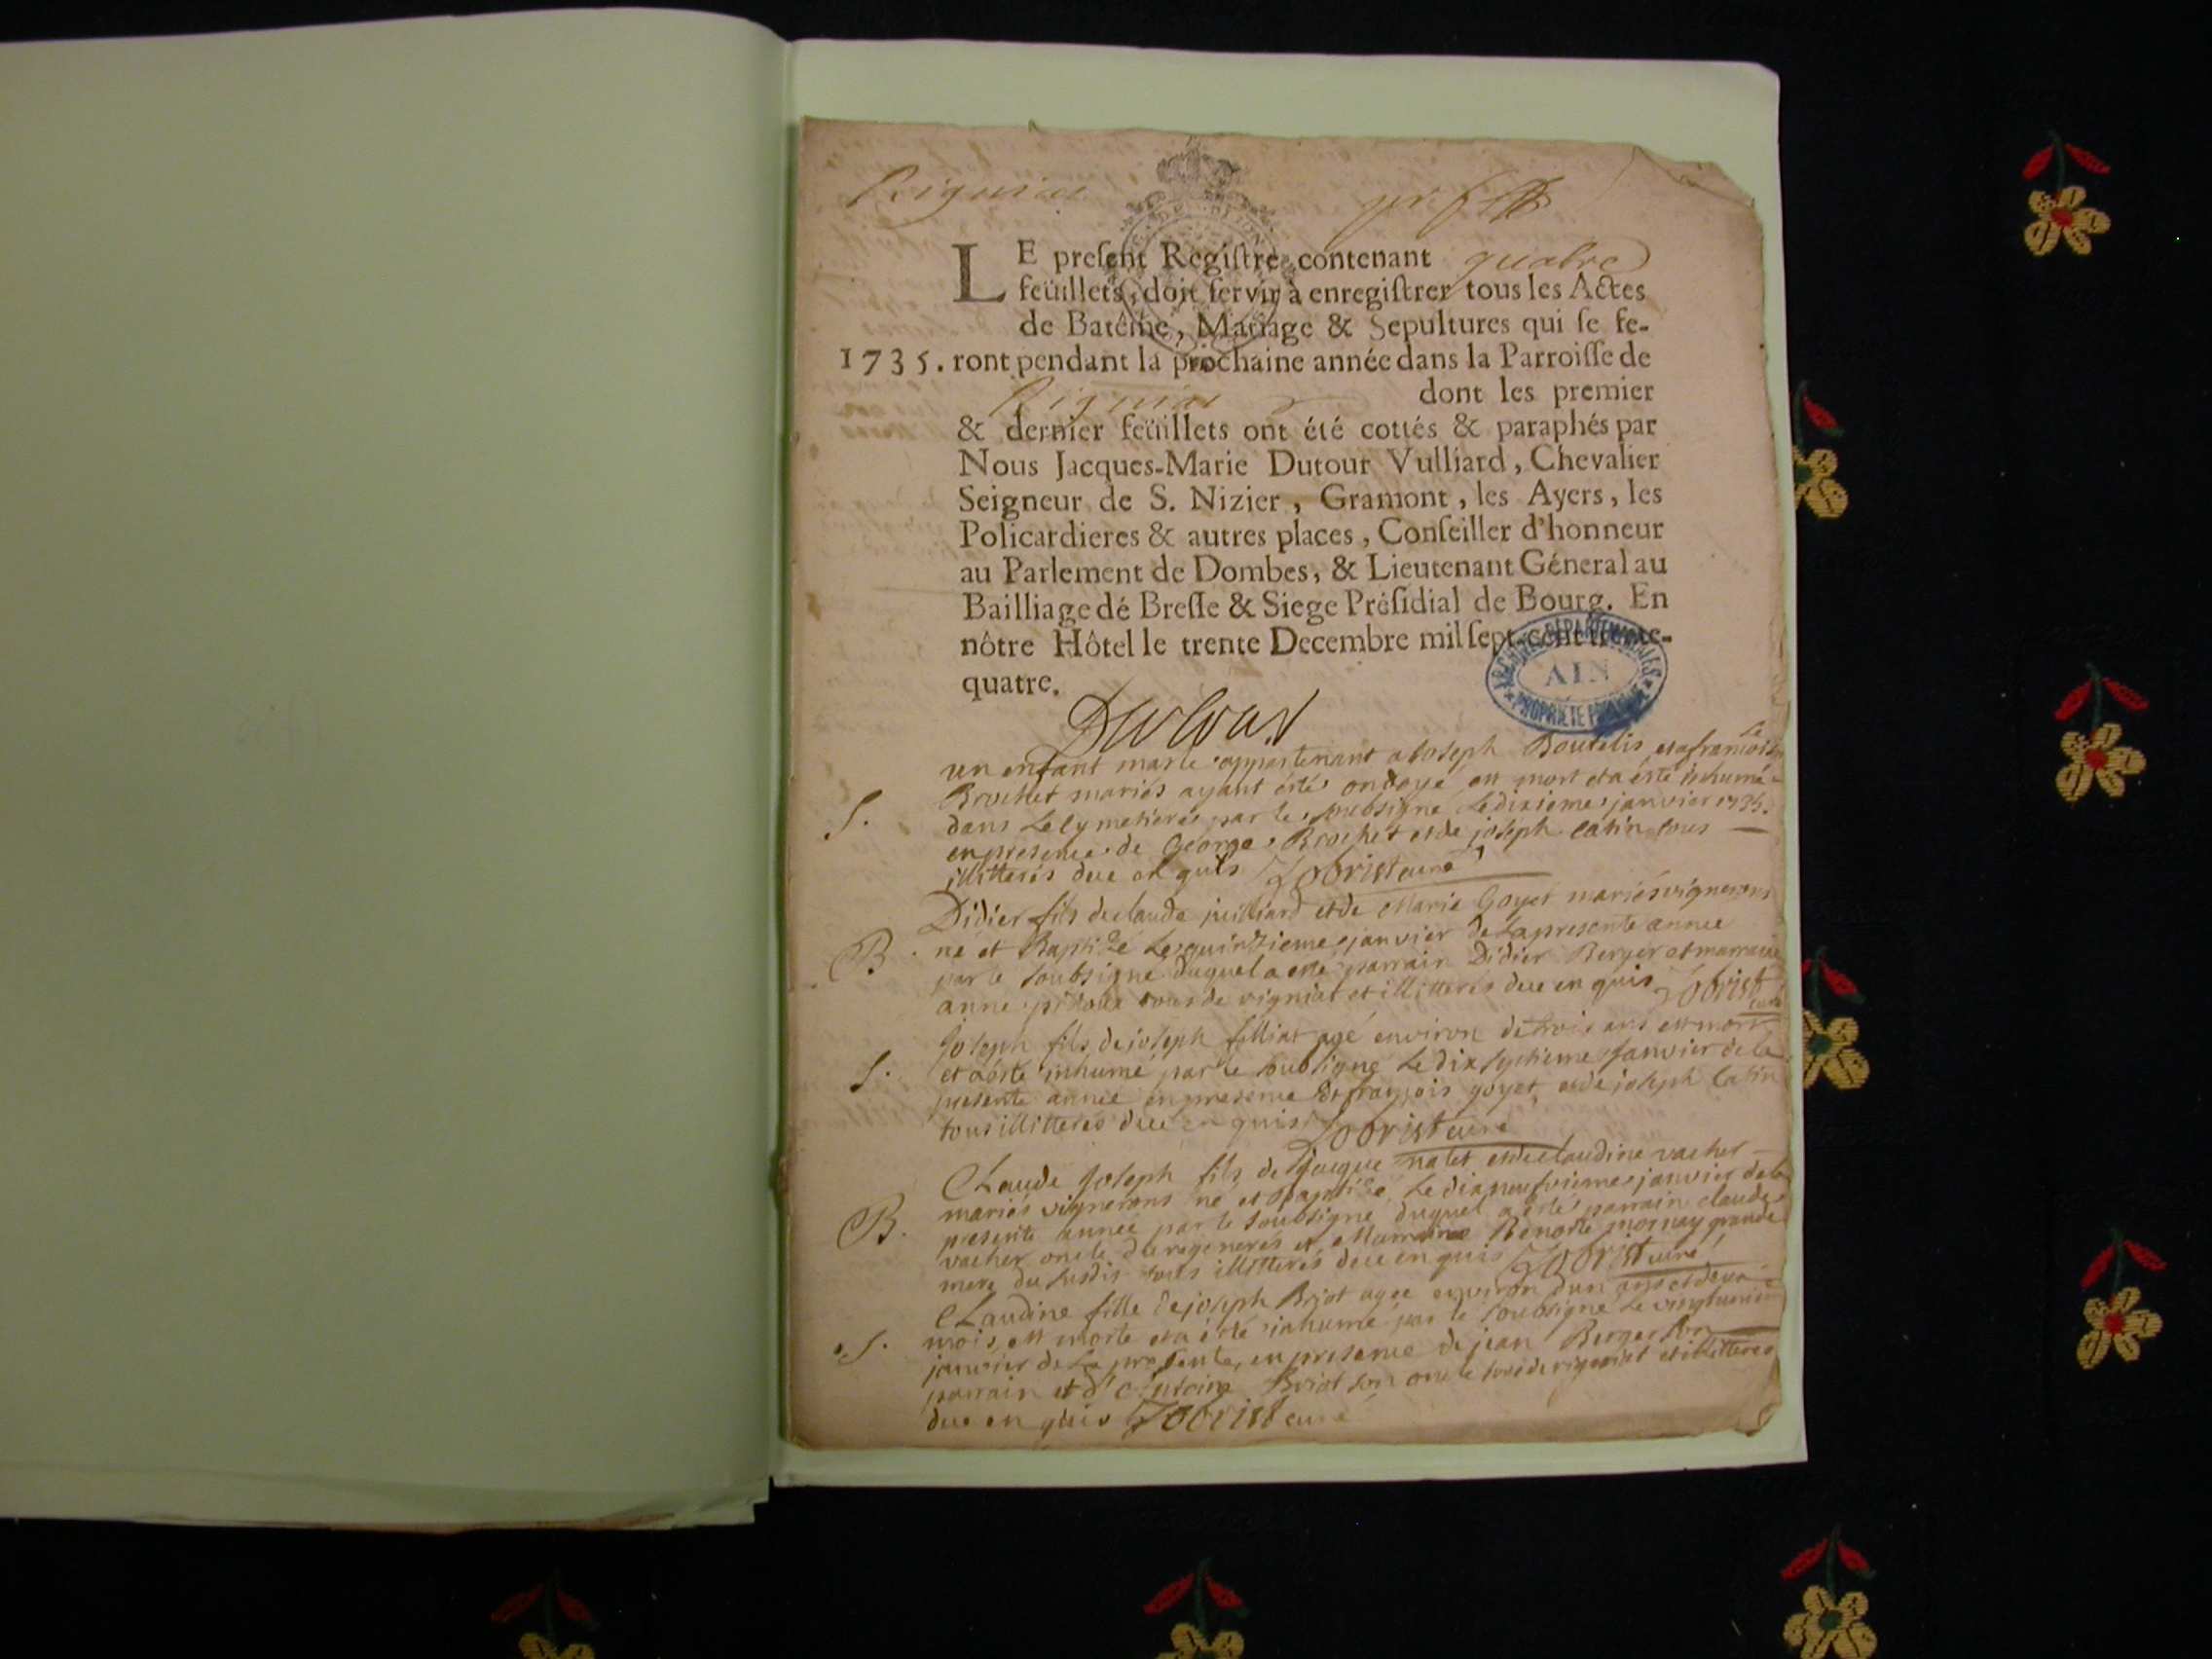 Rigniat
LE preſent Regiſtre contenant quatre
feüillets, doit ſervir à enregiſtrer tous les Actes
de Batême, Mariage & Sepultures qui ſe fe-
1735. ront pendant la prochaine année dans la Parroiſſe de
Rigniat dont les premier
& dernier feüillets ont été cottés & paraphés par
Nous Jacques-Marie Dutour Vulliard, Chevalier
Seigneur de S. Nizier, Gramont, les Ayers, les
Policardieres & autres places, Conſeiller d'honneur
au Parlement de Dombes, & Lieutenant Géneral au
Bailliage dé Breſſe & Siege Préſidial de Bourg. En
nôtre Hôtel le trente Decembre mil ſept-cent trente-
quatre.
ARCHIVES DEPARTEMENTALES
AIN
PROPRIETE PUBLIQUE
Dutour
un enfant masle appartenant a Joseph Boutelis et a francoise
Brochet mariés ayant ésté ondoyé est mort et a ésté inhumé
S. dans Le Cymetiere par le soubsigné Le dixieme janvier 1735.
en presence de George Brochet et de joseph Catin tous
illitterés due enquis Zobrist curé
Didier fils de claude juilliard et de Marie Goyet mariés vignerons
B. né et Baptizé Le quinzieme janvier de La presente année
par le soubsigné duquel a esté parrain Didier Berger et marraine
anne tous de rigniat et illitterés due en quis Zobrist
curé
Joseph fils de joseph filliat agé environ de trois ans est mort
S. et a ésté inhumé par le soubsigné Le dix septieme janvier de la
presente année en presence de françois goyet, et de joseph Catin
tous illitterés due en quis Zobrist curé
Claude Joseph fils de Jacque nalet et de claudine vacher
mariés vignerons né et Baptizé Le dixneufvieme janvier de la
B. presente année par le soubsigné duquel a ésté parrain claude
vacher oncle du regenerés et Marraine Benoite mornay grande
mere du susdit tous illitterés due en quis Zobrist curé
Claudine fille de joseph Briot agee environ d'un ans et deux
mois, est morte et a ésté inhumé par le soubsigné Le vingtunieme
S. janvier de La presente, en presence de jean Berger son
parrain et d'Antoine Briot son oncle tous de rigniat et illitteres
due en quis Zobrist curé